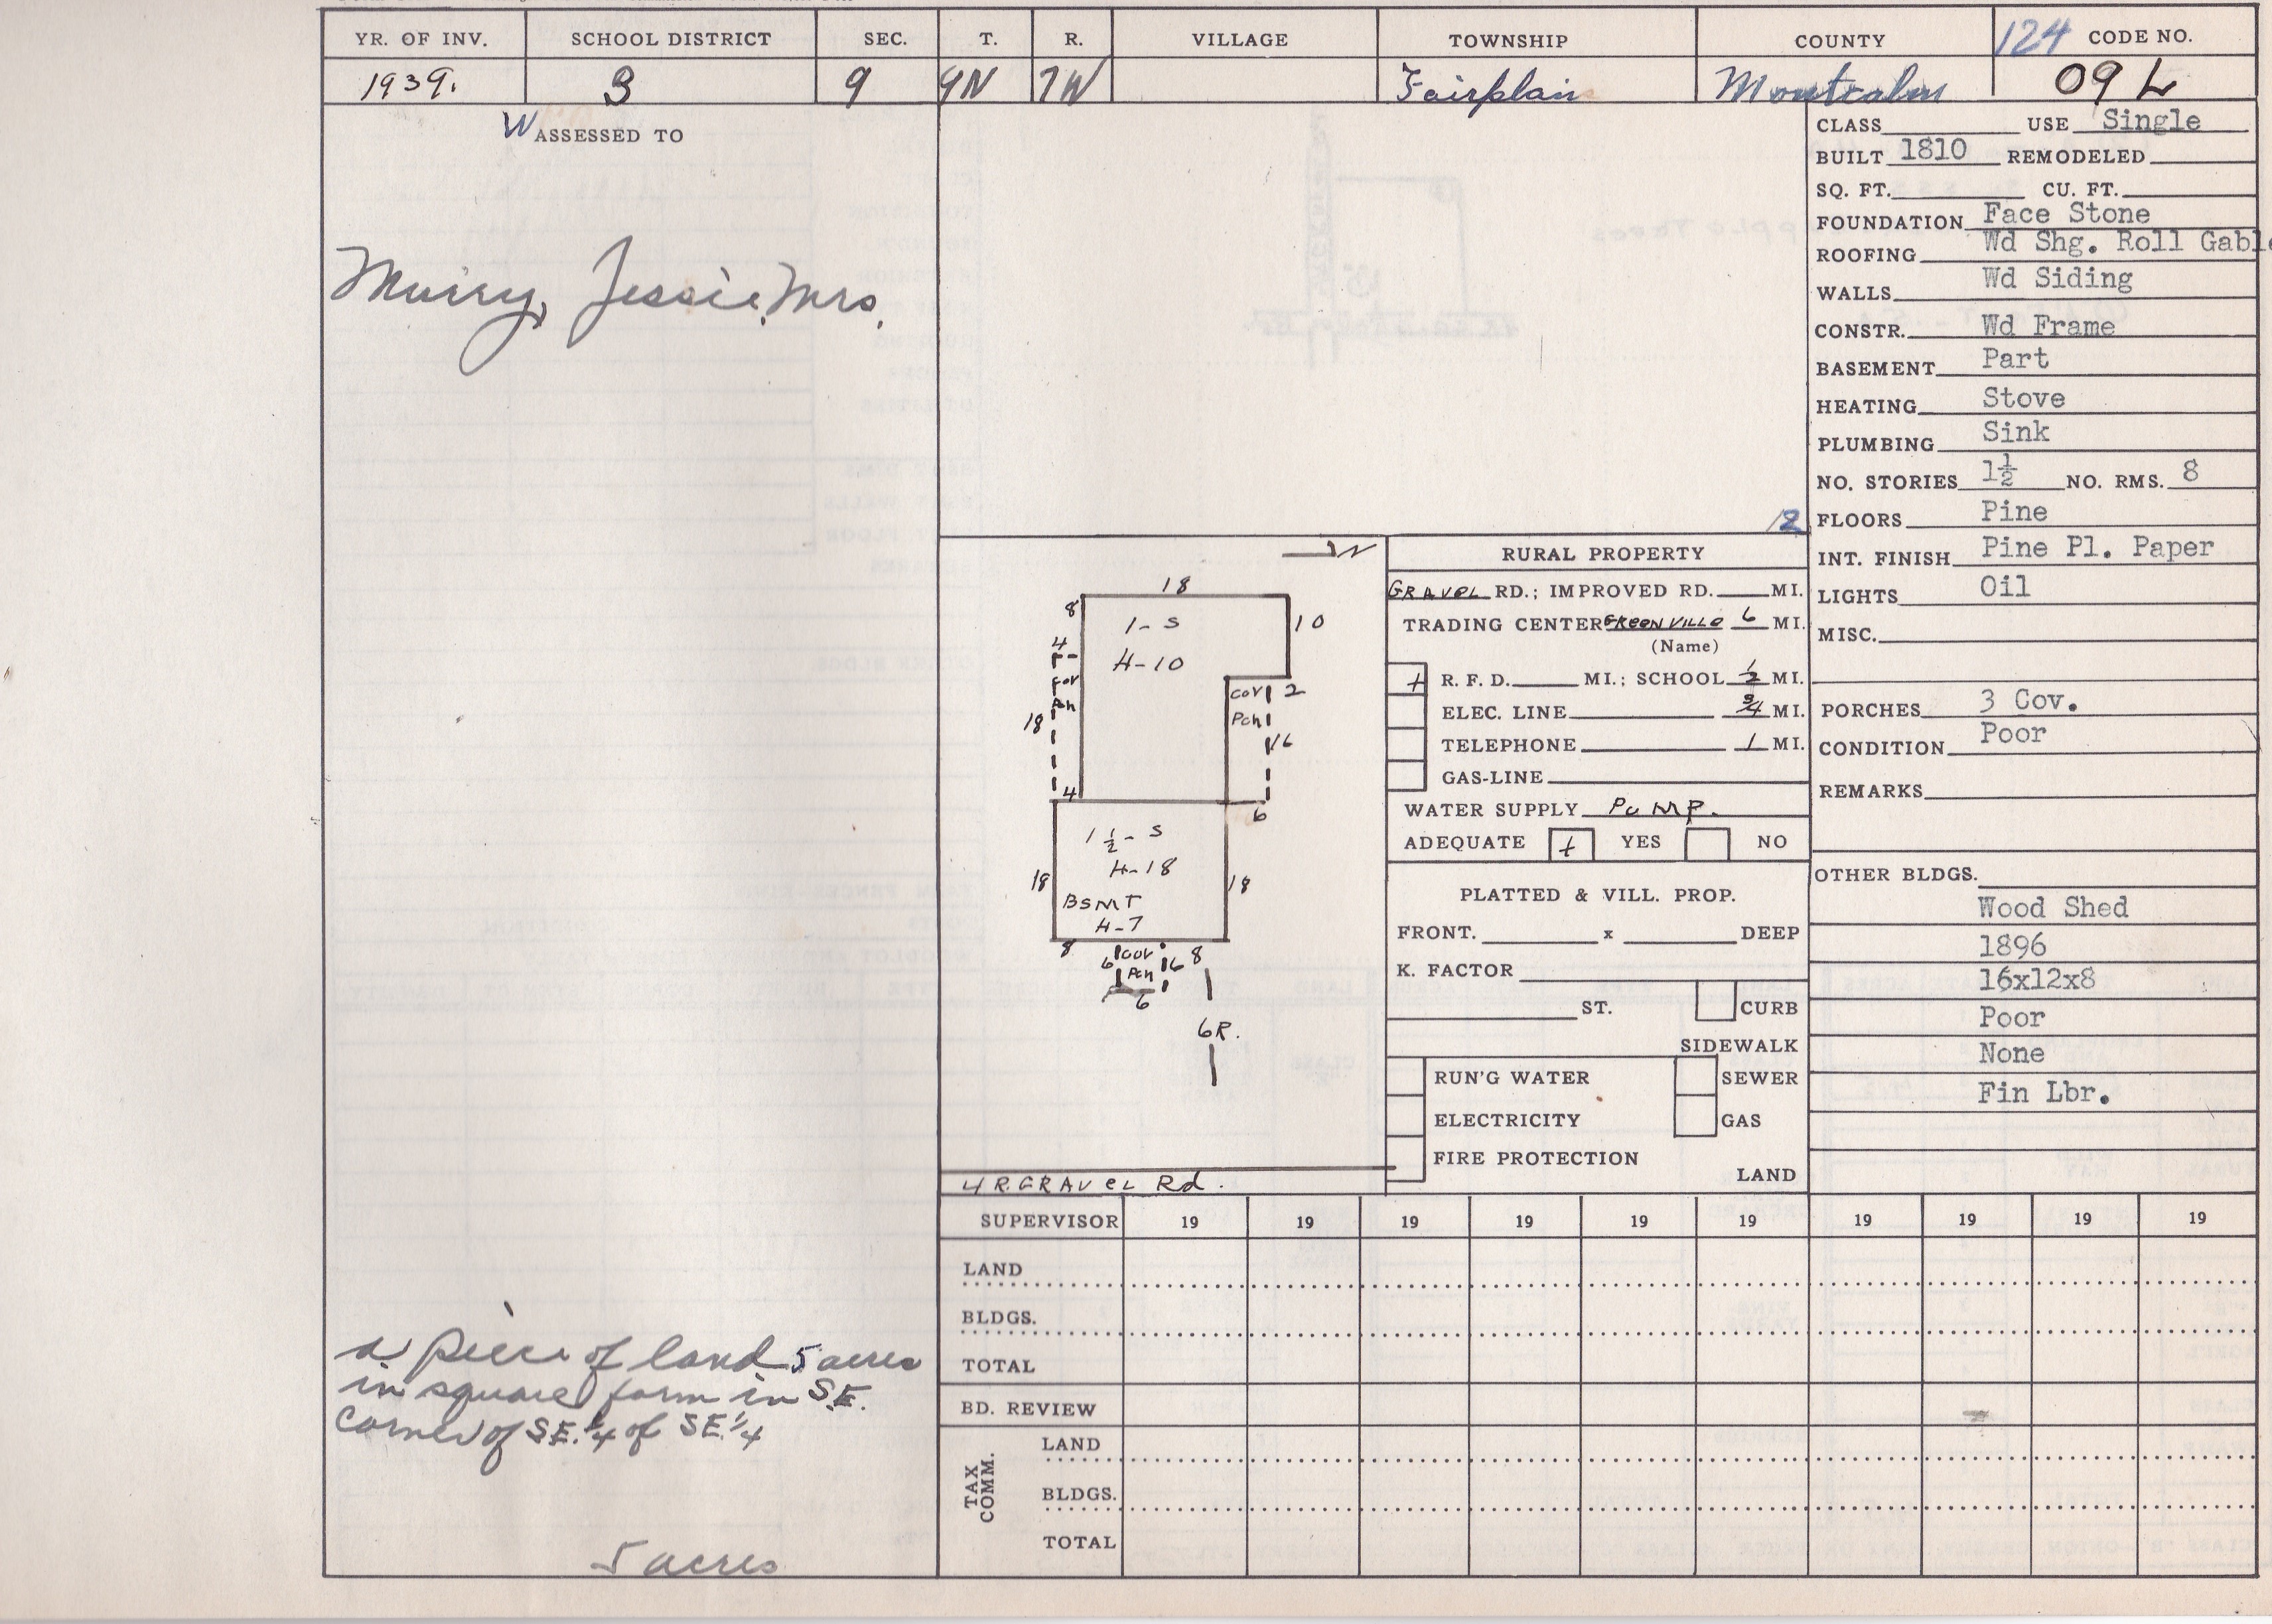 YR. OF INV. SCHOOL DISTRICT SEC. T. R. VILLAGE TOWNSHIP COUNTY 124 CODE NO.
1939. 3 9 9N 7W Fairplain Montcalm 09 L
W ASSESSED TO
Murry, Jessie, Mrs.
a piece of land 5 acres
in square form in S.E.
corner of S.E. 1/4 of S.E. 1/4
5 acres
12
N
18
8
1-S
H-10
10
4
Cov
Pch
18
4
Cov
Pch
2
16
6
1 1/2-S
H-18
BSMT
H-7
18
18
8
6
Cov
Pch
6
8
6
6R.
4 R. GRAVEL Rd.
RURAL PROPERTY
GRAVEL RD.; IMPROVED RD. MI.
TRADING CENTER GREENVILLE 6 MI.
(Name)
+ R. F. D. MI.; SCHOOL 1/2 MI.
ELEC. LINE 3/4 MI.
TELEPHONE 1 MI.
GAS-LINE
WATER SUPPLY PUMP.
ADEQUATE + YES NO
PLATTED & VILL. PROP.
FRONT. x DEEP
K. FACTOR
ST. CURB
SIDEWALK
RUN'G WATER SEWER
ELECTRICITY GAS
FIRE PROTECTION
LAND
CLASS USE Single
BUILT 1810 REMODELED
SQ. FT. CU. FT.
FOUNDATION Face Stone
ROOFING Wd Shg. Roll Gable
WALLS Wd Siding
CONSTR. Wd Frame
BASEMENT Part
HEATING Stove
PLUMBING Sink
NO. STORIES 1½ NO. RMS. 8
FLOORS Pine
INT. FINISH Pine Pl. Paper
LIGHTS Oil
MISC.
PORCHES 3 Cov.
CONDITION Poor
REMARKS
OTHER BLDGS.
Wood Shed
1896
16x12x8
Poor
None
Fin Lbr.
SUPERVISOR 19 19 19 19 19 19 19 19 19 19
LAND
BLDGS.
TOTAL
BD. REVIEW
TAX COMM.
LAND
BLDGS.
TOTAL